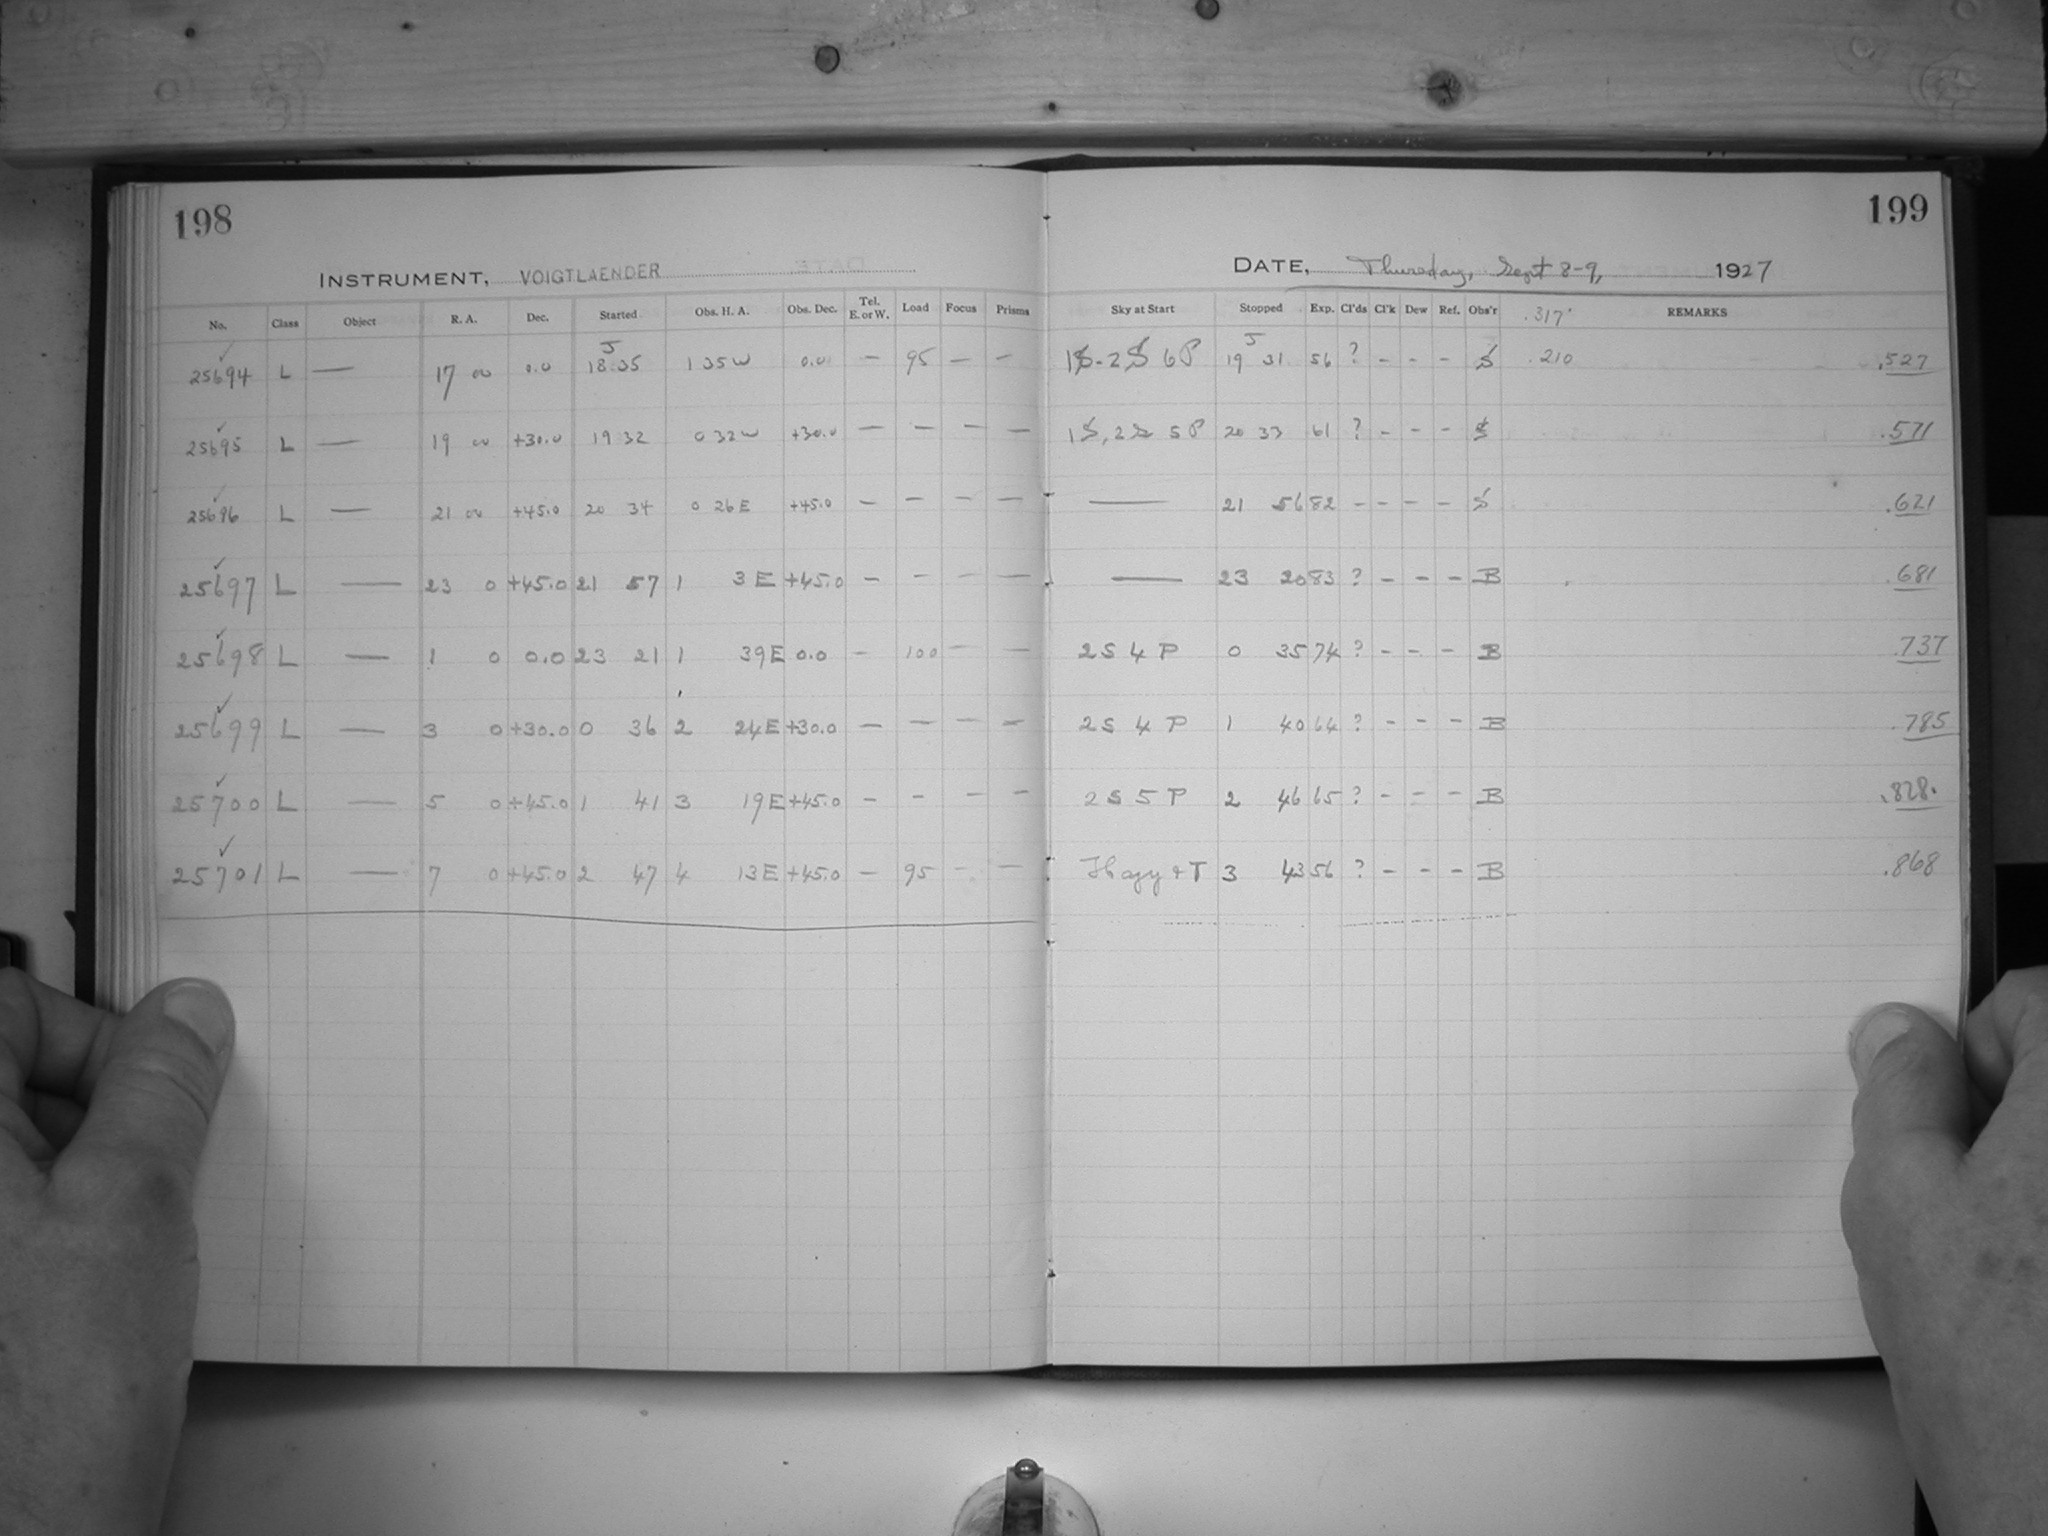 198
INSTRUMENT, VOIGTLAENDER
No. Class Object R. A. Dec. Started Obs. H. A. Obs. Dec. Tel. E. or W. Load Focus Prisms
25694 L — 17 00 0.0 J 18 35 1 35 W 0.0 — 95 — —
25695 L — 19 00 +30.0 19 32 0 32 W +30.0 — — — —
25696 L — 21 00 +45.0 20 34 0 26 E +45.0 — — — —
25697 L — 23 0 +45.0 21 57 1 3 E +45.0 — — — —
25698 L — 1 0 0.0 23 21 1 39 E 0.0 — 100 — —
25699 L — 3 0 +30.0 0 36 2 24 E +30.0 — — — —
25700 L — 5 0 +45.0 1 41 3 19 E +45.0 — — — —
25701 L — 7 0 +45.0 2 47 4 13 E +45.0 — 95 — —
199
DATE, Thursday, Sept 8-9, 1927
Sky at Start Stopped Exp. Cl'ds Cl'k Dew Ref. Obs'r .317 REMARKS
1S-2S 6P J 19 31 56 ? - - - S .210 .527
1S, 2S 5P 20 33 61 ? - - - S .571
— 21 56 82 - - - - S .621
— 23 20 83 ? - - - B .681
2S 4 P 0 35 74 ? - - - B .737
2S 4 P 1 40 64 ? - - - B .785
2S 5 P 2 46 65 ? - - - B .828
Hazy & T 3 43 56 ? - - - B .868